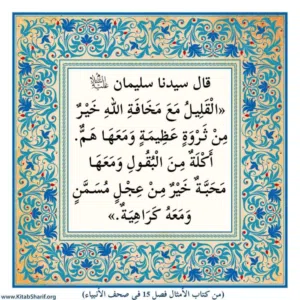 قال سيدنا سليمان
«الْقَلِيلُ مَعَ مَخَافَةِ اللهِ خَيْرٌ
مِنْ ثَرْوَةٍ عَظِيمَةٍ وَمَعَهَا هَمٌّ.
أَكْلَةٌ مِنَ الْبُقُولِ وَمَعَهَا
مَحَبَّةٌ خَيْرٌ مِنْ عِجْلٍ مُسَمَّنٍ
وَمَعَهُ كَرَاهِيَةٌ.»
(من كتاب الأمثال فصل 15 في صحف الأنبياء)
www.KitabSharif.org